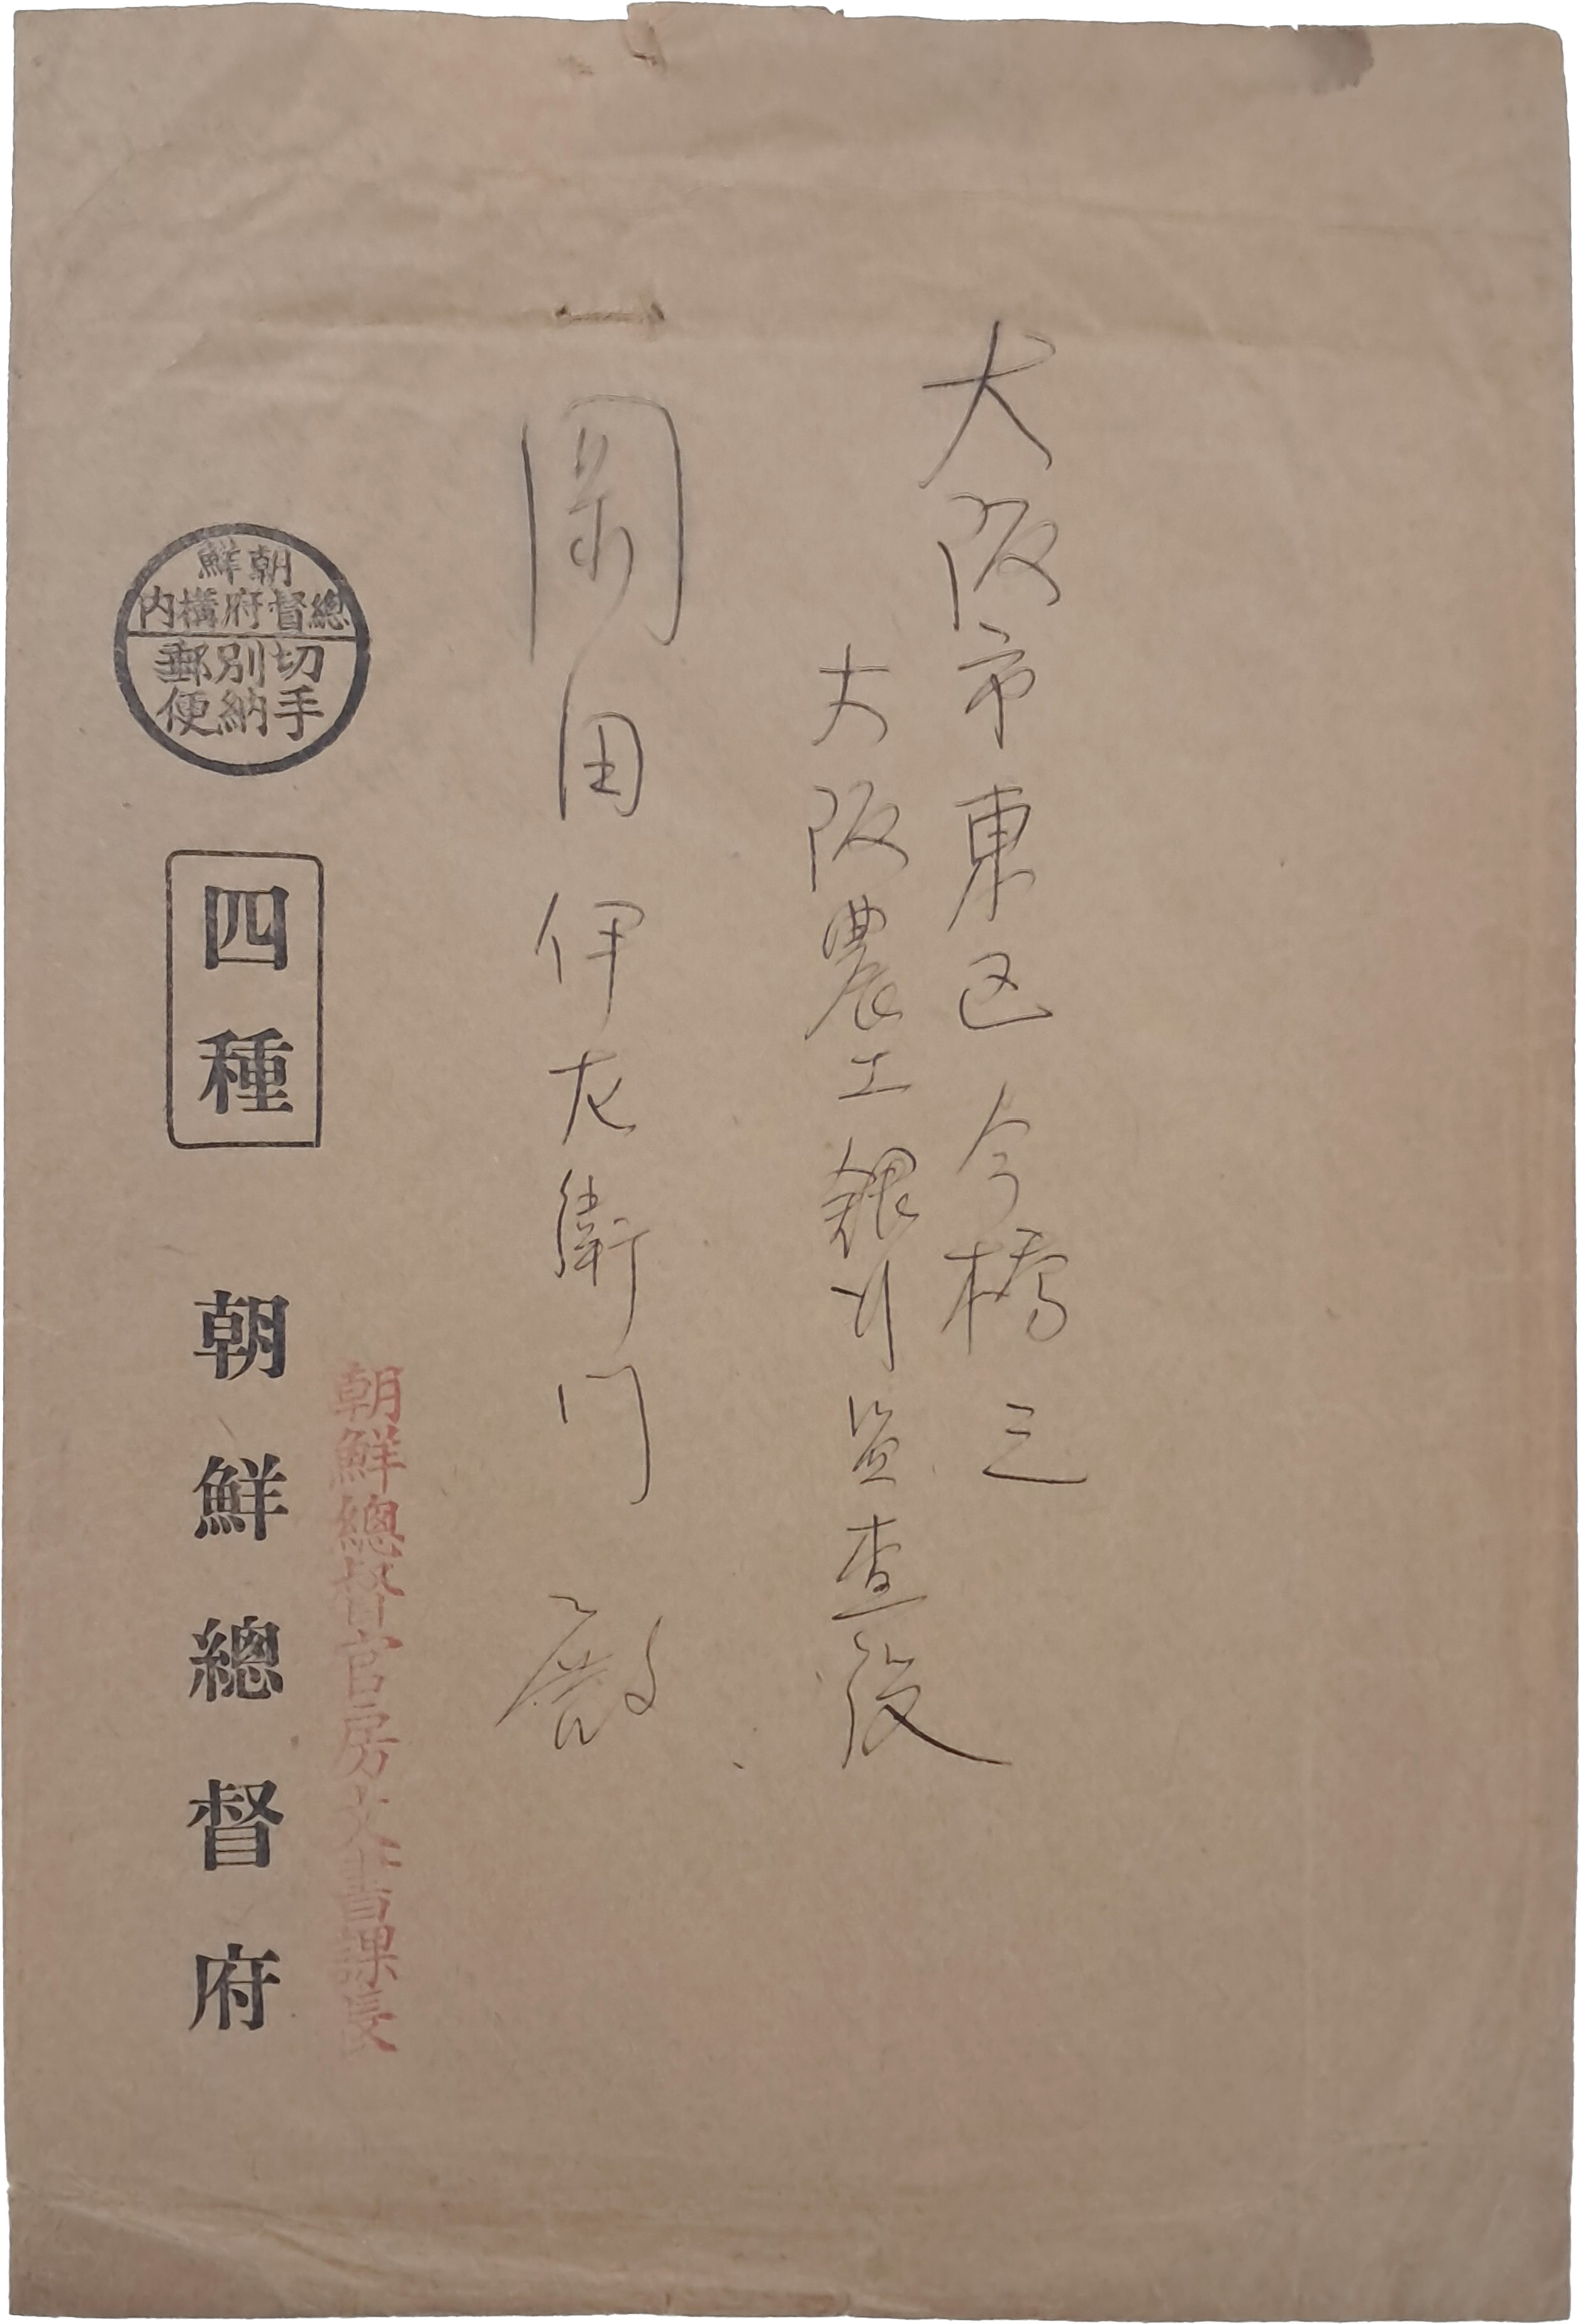 大阪市東区今橋三
大阪農工銀行监查役
岡田伊左衛门殿
朝鮮總督官房文書課長
朝鮮
總督府構内
切手
別納
郵便
四種
朝鮮總督府